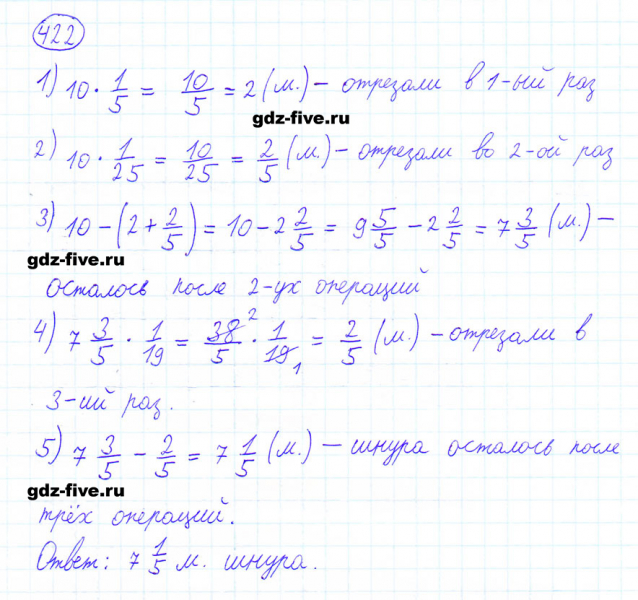 422
1) 10 · 1/5 = 10/5 = 2 (м.) – отрезали в 1-ый раз
gdz-five.ru
2) 10 · 1/25 = 10/25 = 2/5 (м.) – отрезали во 2-ой раз
3) 10 – (2 + 2/5) = 10 – 2 2/5 = 9 5/5 – 2 2/5 = 7 3/5 (м.) –
gdz-five.ru
осталось после 2-ух операций
4) 7 3/5 · 1/19 = 38/5 2 · 1/19 1 = 2/5 (м.) – отрезали в
3-ий раз.
5) 7 3/5 – 2/5 = 7 1/5 (м.) – шнура осталось после
gdz-five.ru
трёх операций.
Ответ: 7 1/5 м. шнура.